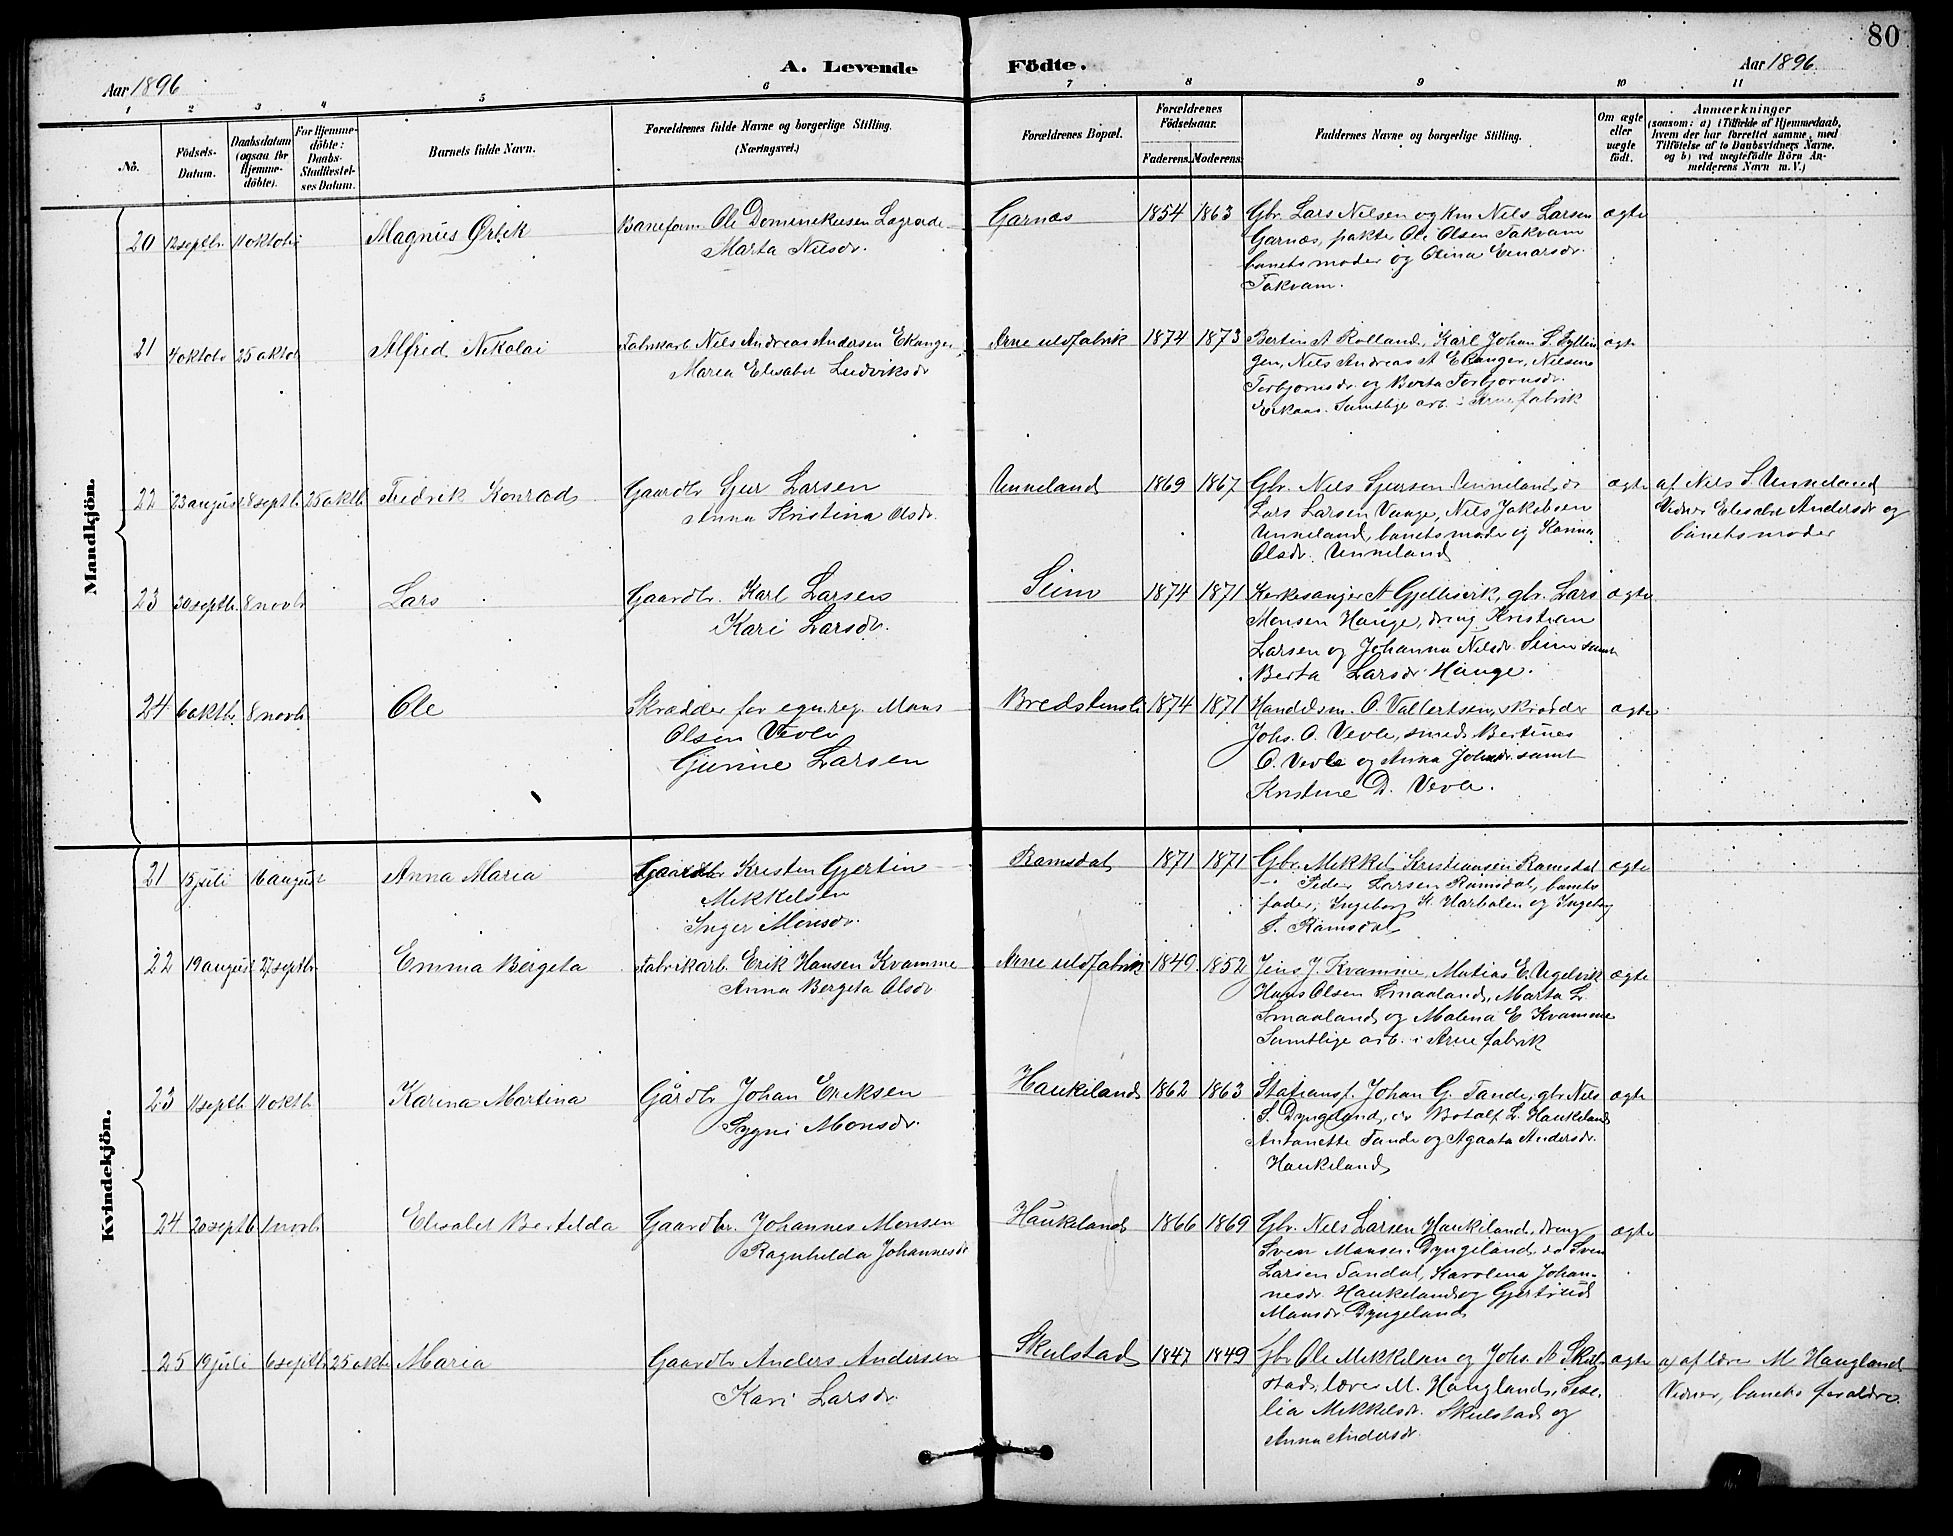 80
Aar 1896
A. Levende Födte.
Aar 1896
1 2 3 4 5 6 7 8 9 10 11
No.
Födsels-Datum.
Daabsdatum (ogsaa for Hjemme-döbte).
For Hjemme-döbte: Daabs-Stadfæstel-ses Datum.
Barnets fulde Navn.
Forældrenes fulde Navne og borgerlige Stilling.
(Næringsvei.)
Forældrenes Bopæl.
Forældrenes Födselsaar.
Faderens. Moderens.
Faddernes Navne og borgerlige Stilling.
Om ægte eller uægte født.
Anmærkninger
(saasom: a) i Tilfælde af Hjemmedaab,
hvem der har forrettet samme, med
Tilföielse af to Daabsvidners Navne.
og b) ved uægtefödte Börn An-
melderens Navn m. V.)
Mandkjön.
20 12 septbr. 11 oktobr Magnus Ørbek
Baneform. Ole Dominikusen
Marta Nilsdr.
Garnæs 1854 1863
Gbr. Lars Nilsen og km Nils Larsen
Garnæs, Ole Olsen Takvam
banets moder og Olina Einarsdr.
Takvam.
ægte
21 4 oktobr 25 oktob Alfred Nikolai
Fabrikarb Nils Andreas Andersen Ekanger
Maria Elisabet Ludviksdr
Arne uldfabrik 1874 1873
Bertin A Rolland, Karl Johan S.
gen, Nils Andreas A Ekanger,
Torbjornsdr. og Berta Torbjornsdr.
Samtlige arb. i Arne fabrik
ægte
22 23 august 8 septb. 25 oktb. Fredrik Konrad
Gaardbr Sjur Larsen
Anna Kristina Olsdr.
Unneland 1869 1867
Gbr. Nils Sjursen Unneland, do
Lars Larsen Vange, Nils Jakobsen
Unneland, banets moder og Karina
Olsdr. Unneland
ægte
af Nils S. Unneland
Vidner Elisabet Andersdr og
banets moder
23 30 septbr. 8 novb Lars
Gaardbr. Karl Larsen
Kari Larsdr.
Seim 1874 1871
Kirkesanger A Gjellesvik, gbr. Lars
Monsen Hauge, dreng Kristian
Larsen og Johanna Nilsdr. Seim samt
Berta Larsdr Hauge.
ægte
24 6 oktb. 8 novb Ole
Skrædder for egn. reg. Mons
Olsen Vevle
Gurine Larsen
Bredstensli 1874 1871
Handelsm. O. Vallertsen, skrædder
Johs. O. Vevle, smed Bertines
O. Vevle og Anna Johsdr. samt
Kristine D. Vevle.
ægte
Kvindekjön.
21 15 juli 16 august Anna Maria
Gaardbr Kristen Gjertin
Mikkelsen
Inger Monsdr.
Ramsdal 1871 1871
Gbr. Mikkel Kristiansen Ramsdal
Peder Larsen Ramsdal, banets
fader, Ingeborg og Ingeborg
S. Ramsdal
ægte
22 19 august 27 septbr Emma Bergeta
Fabrikarb. Erik Hansen Kvamme
Anna Bergeta Olsdr
Arne uldfabrik 1849 1852
Jens J. Kvamme, Matias E.
Hans Olsen Smaaland, Marta L.
Smaaland og Malena E Kvamme
Samtlige arb. i Arne fabrik
ægte
23 11 septb. 11 oktb. Karina Martina
Gårdbr Johan Eriksen
Sygni Monsdr.
Haukeland 1862 1863
Stationsf. Johan G. Tande, gbr Nils
S. Dyngeland, do Botolf L. Haukeland
Antonette Tande og Agaata Andersdr.
Haukeland
ægte
24 20 septb 1 novb Elisabet Bertilda
Gaardbr. Johannes Monsen
Ragnhilda Johannesdr
Haukeland 1866 1869
Gbr. Nils Larsen Haukeland, dreng
Sven Monsen Dyngeland, do Sven
Larsen Tandal, Karolina Johan-
nesdr. Haukeland og Gjertrud
Monsdr Dyngeland
ægte
25 19 juli 6 septbr 25 oktbr Maria
Gaardbr Anders Andersen
Kari Larsdr.
Skulstad 1847 1849
Gbr Ole Mikkelsen og Johs. A Skul-
stad, lærer M. Haugland, Sese-
lia Mikkelsdr. Skulstad og
Anna Andersdr.
ægte
a) af lærer M Haugland
Vidner, banets foraldre.